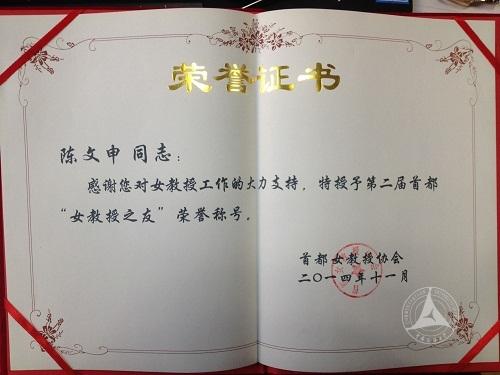 荣誉证书
陈文申 同志：
感谢您对女教授工作的大力支持，特授予第二届首都
“女教授之友”荣誉称号。
首都女教授协会
二〇一四年十一月